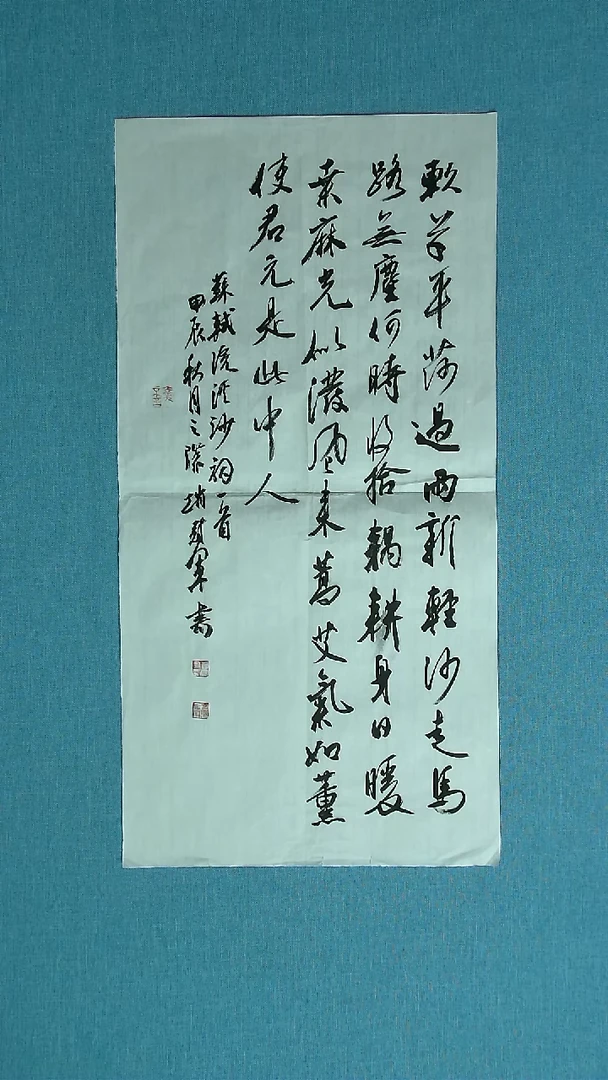 軟草平莎過雨新輕沙走馬
路無塵何時收拾耦耕身日暖
桑麻光似潑風來蒿艾氣如薰
使君元是此中人
蘇軾浣溪沙詞一首
甲辰秋月之際趙軍書